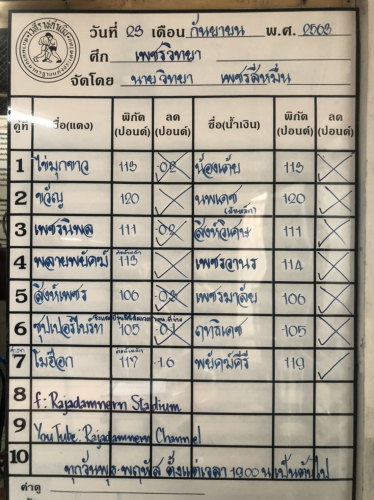 วันที่ 23 เดือน กันยายน พ.ศ. 2563
ศึก เพชรวิทยา
จัดโดย นายวิทยา เพชรสี่หมื่น
คู่ที่ ชื่อ(แดง) พิกัด (ปอนด์) ลด (ปอนด์) ชื่อ(น้ำเงิน) พิกัด (ปอนด์) ลด (ปอนด์)
1 ไข่มุกขาว 113 -02 น้องเต้ย 113
2 ขวัญ 120 นพเดช 120
3 เพชรนิพล 111 -02 สิงห์วิเศษ 111
4 พลายพยัคฆ์ 113 เพชรวานร 114
5 สิงห์เพชร 106 -03 เพชรมาลัย 106
6 ซุปเปอร์ไบร์ท 105 -01 ฤทธิเดช 105
7 โมฮ็อก 117 -1.6 พยัคฆ์คีรี 119
8 f: Rajadamnern Stadium
9 YouTube: Rajadamnern Channel
10 ทุกวันพุธ-พฤหัส ตั้งแต่เวลา 19.00 น. เป็นต้นไป
ค่าดู